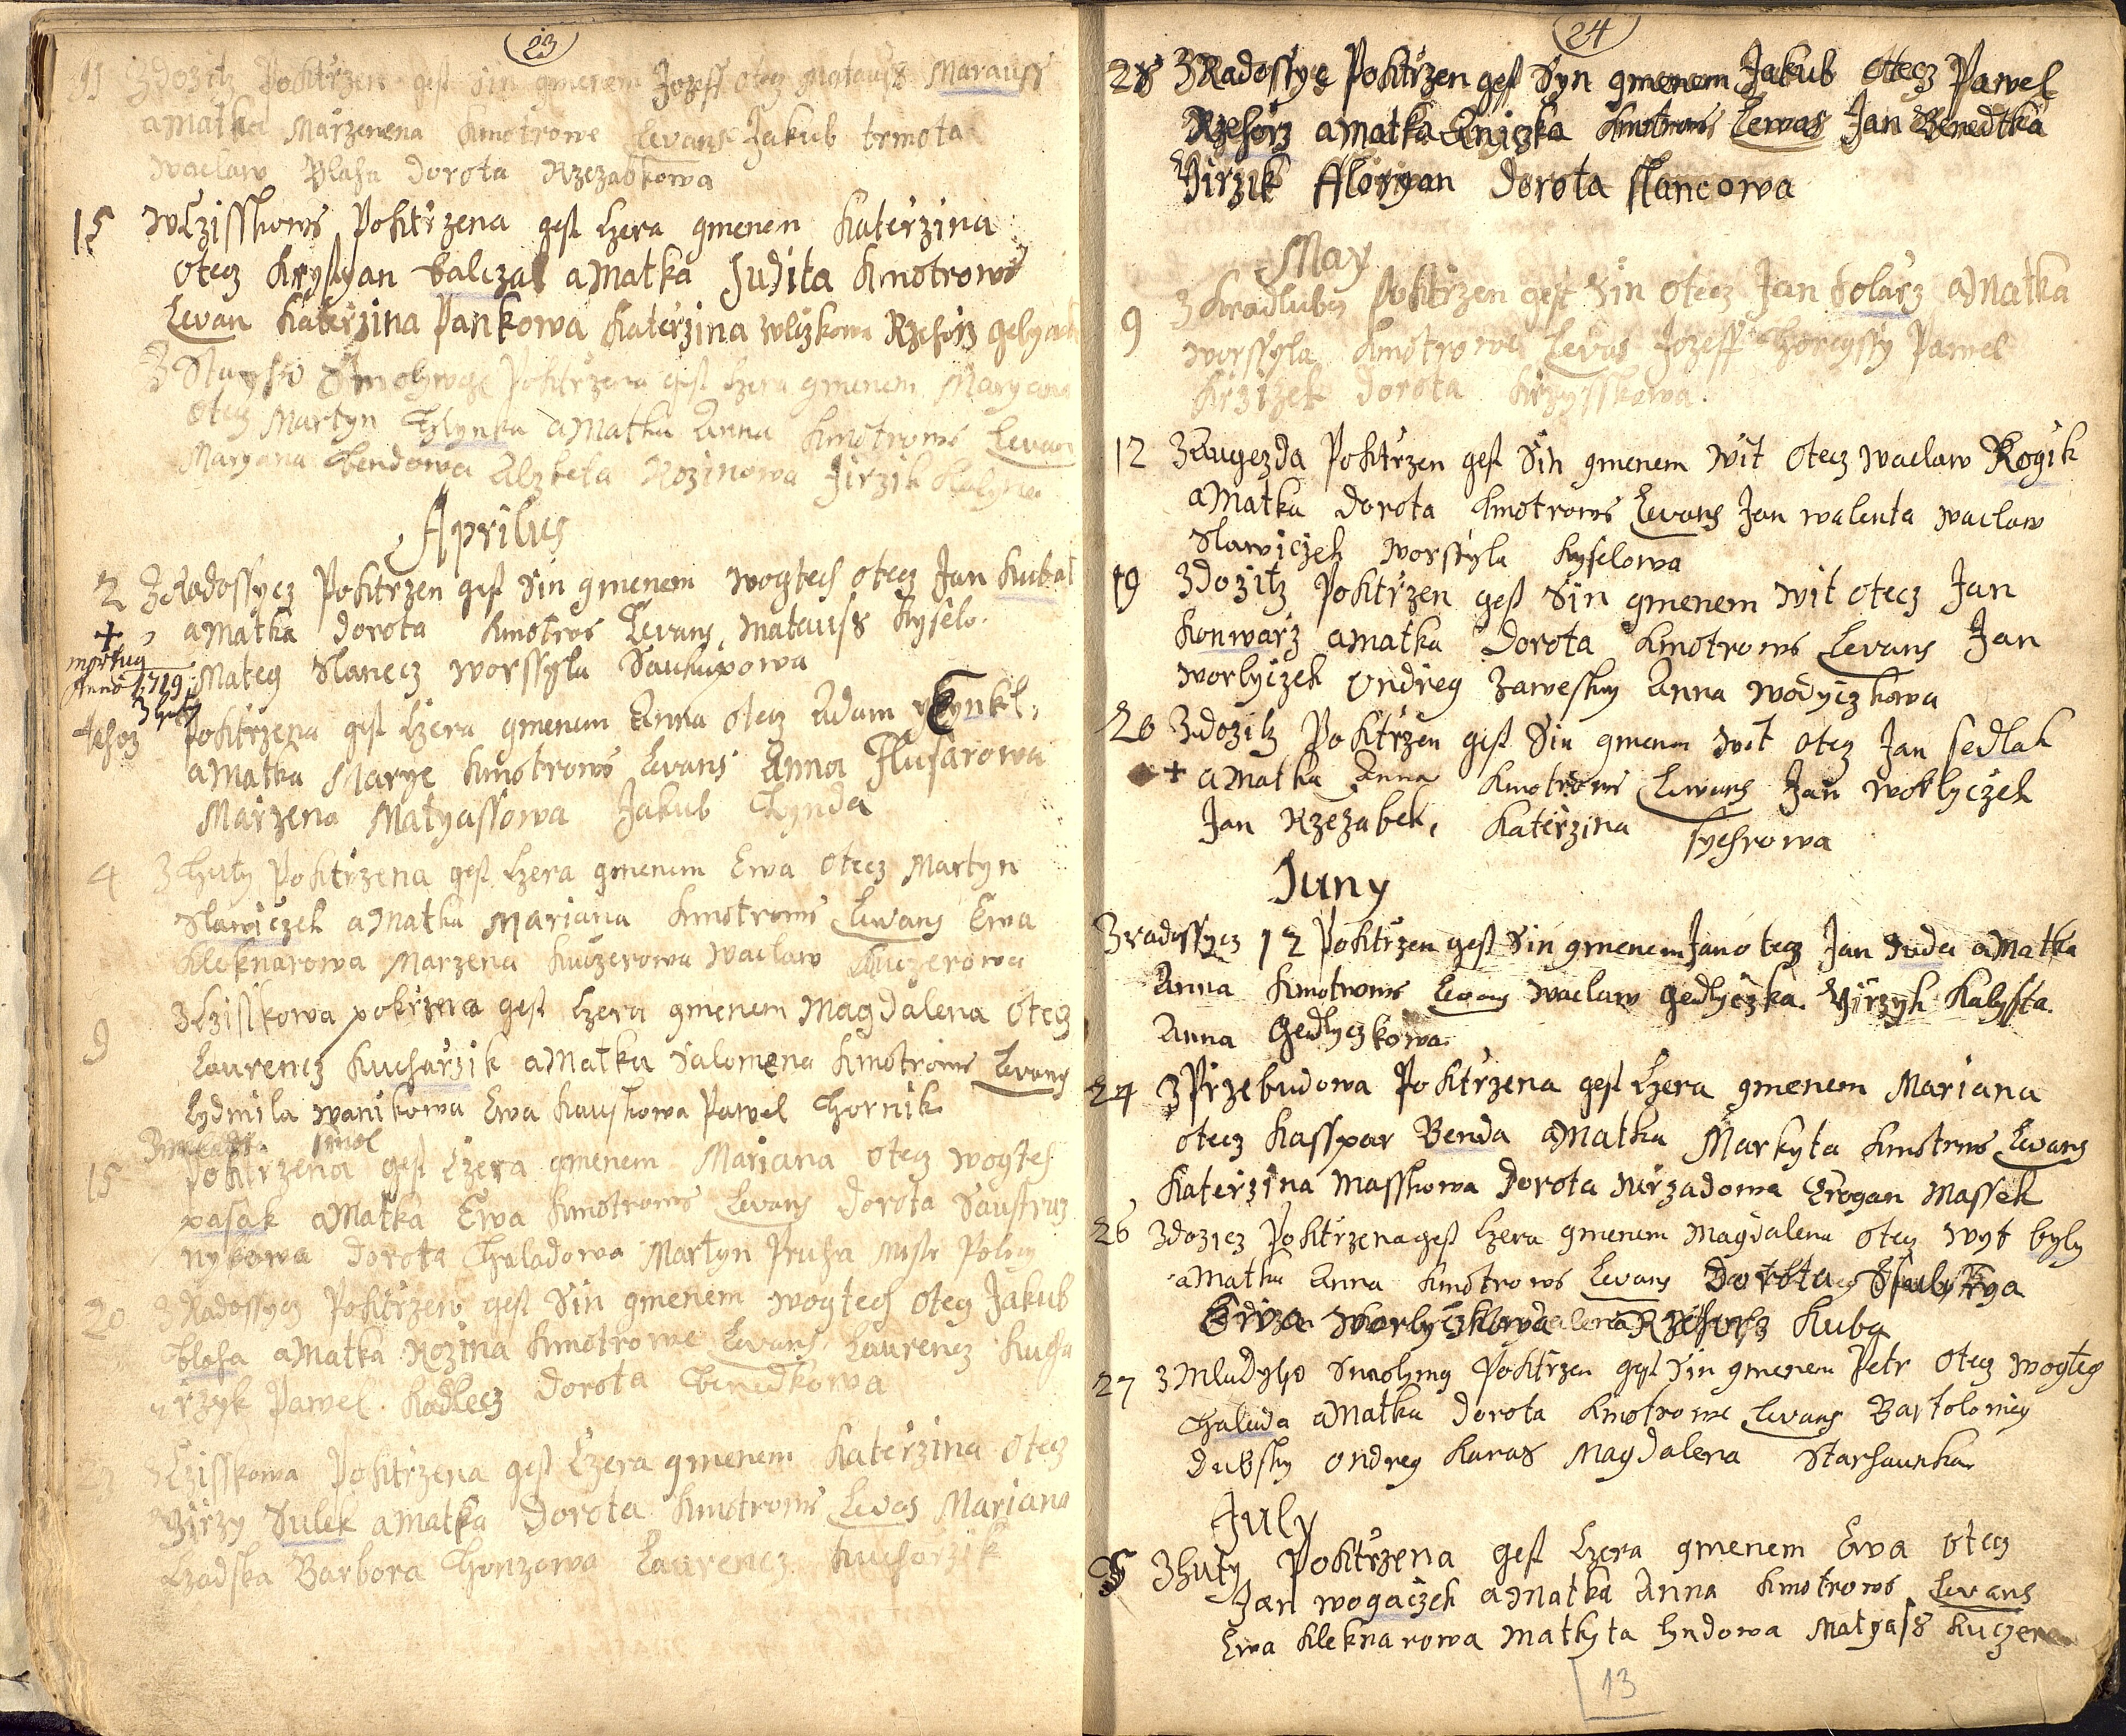 23
11 Zdozitz Pokrtzen gest Sin gmenem Jozeff otecz Matauss Marauss
a Matka Marzenena kmotrowe Levans Jakub trmota
waclaw Blaha Dorota Rzezabkowa
15 w Lzisskows Pokrtzena gest Lzera gmenem Katerzina
otecz Krystyan balczar a Matka Judita kmotrows
Levan Katerzina Pankowa Katerzina wlczkowa Rzehorz
Z Stareho Smoliwcze Pokrtzena gest Lzera gmenem Maryana
otecz Martyn Hlynka a Matka Anna kmotrows Levan
Maryana Bendowa Alzbeta Rozinowa Jirzik
Aprilus
2 Z Radossycz Pokrtzen gest Sin gmenem wogtech otecz Jan Kubat
+ a Matka Dorota kmotrws Levans Matauss Kyselo
mortuy Mateg Slanecz worssyla Saukupowa
Anno 1719
Z huty
tehoz Pokrtzena gest Lzera gmenem Anna otecz Adam
a Matka Marye kmotrows Levans Anna Flusarowa
Marzena Matyassowa Jakub Lynda
4 Z huty Pokrtzena gest Lzera gmenem Ewa otecz Martyn
Slawiczek a Matka Mariana kmotrows Levans Ewa
Kleknarowa Marzena Kuczerowa waclaw Kuczerowa
9 Z Lzisskowa pokrzena gest Lzera gmenem Magdalena otecz
Laurencz Kucharzik a Matka Salomena kmotrows Levans
Lydmila wanikowa Ewa Kauskowa Pawel Hornik
15 Pokrtzena gest Lzera gmenem Mariana otecz wogtech
pasak a Matka Ewa kmotrows Levans Dorota Saustruz
nykowa Dorota Chaladowa Martyn Pruha
20 Z Radossycz Pokrtzen gest Sin gmenem wogtech otecz Jakub
blaha a Matka Rozina kmotrowe Levans Laurencz Kucha
rzyk Pawel Kadlecz Dorota Benedkowa
Z Lzisskowa Pokrtzena gest Lzera gmenem Katerzina otecz
Yirzy Sulek a Matka Dorota kmotrows Levas Mariana
Lzadska Barbora Honzowa Laurencz Kucharzik
24
28 Z Radossye Pokrtzen gest Syn gmenem Jakub otecz Pawel
Rzehorz a Matka Aniczka kmotrows Lewas Jan Benedtka
Yirzik Ffloryan Dorota slancowa
May
9 Z Kradlubcz Pokrtzen gest Sin otecz Jan Kolarz a Matka
worssyla kmotrowe Levas Jozeff Horeyssy Pawel
Krzizek Dorota Krzysskowa
12 Z Augezda Pokrtzen gest Sin gmenem wit otecz waclaw Rogik
a Matka Dorota kmotrows Levans Jan walenta waclaw
Slawiczek worssyla Kyselowa
19 Zdozitz Pokrtzen gest Sin gmenem wit otecz Jan
Konwarz a Matka Dorota kmotrows Levans Jan
worlyczek Ondreg Zawesky Anna wodyczkowa
20 Zdozitz Pokrtzen gest Sin gmenem wit otecz Jan sedlak
+ a Matka Anna kmotrows Lewans Jan woklyczek
Jan Rzezabek, Katerzina syehrowa
Juny
Z radossycz 12 Pokrtzen gest Sin gmenem Jan otecz Jan Duda a Matka
Anna kmotrows Levans waclaw gedlyczka Yirzyk Kalysta
Anna Gedlyczkowa
24 Z Przebudowa Pokrtzena gest Lzera gmenem Mariana
otecz Kasspar Benda a Matka Markyta kmotrws Levans
Katerzina Masskowa Dorota nirzadowa Brogan Massek
26 Zdozicz Pokrtzena gest Lzera gmenem Magdalena otecz wyt byly
a Matka Anna kmotrows Levans Dorota
worlyczkowa Rzehorz Kuba
27 Z Mladyho Smolywcz Pokrtzen gest Sin gmenem Petr otecz wogteg
Chaluda a Matka Dorota kmotrowe Levans Bartolomieg
Dubsky Ondreg Karas Magdalena Starhaunka
July
5 Z huty Pokrtzena gest Lzera gmenem Ewa otecz
Jan wogaczek a Matka Anna kmotrows Levans
Ewa Kleknarowa Matkyta lyndowa Matyass Kuczera
13